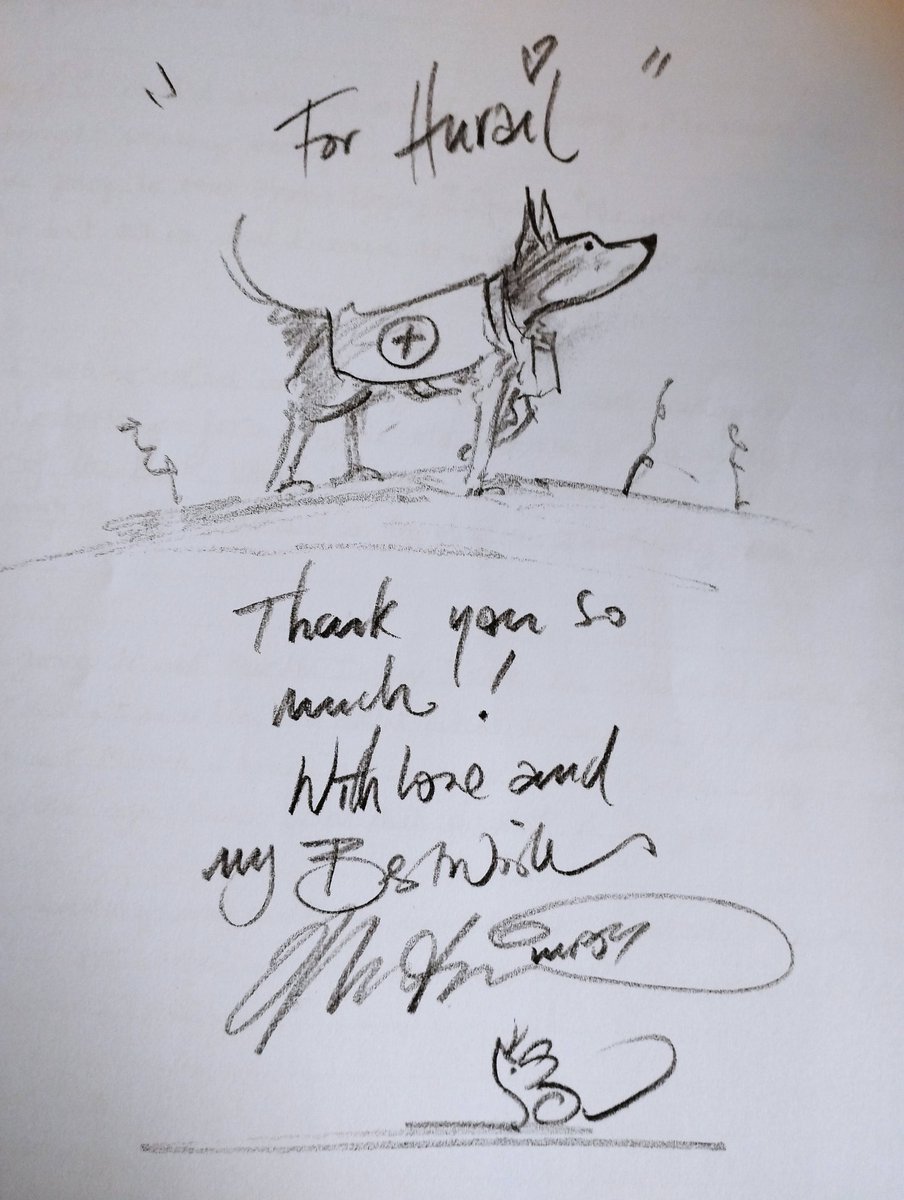 " For Hurail "
Thank you so
much !
With love and
my Best Wishes